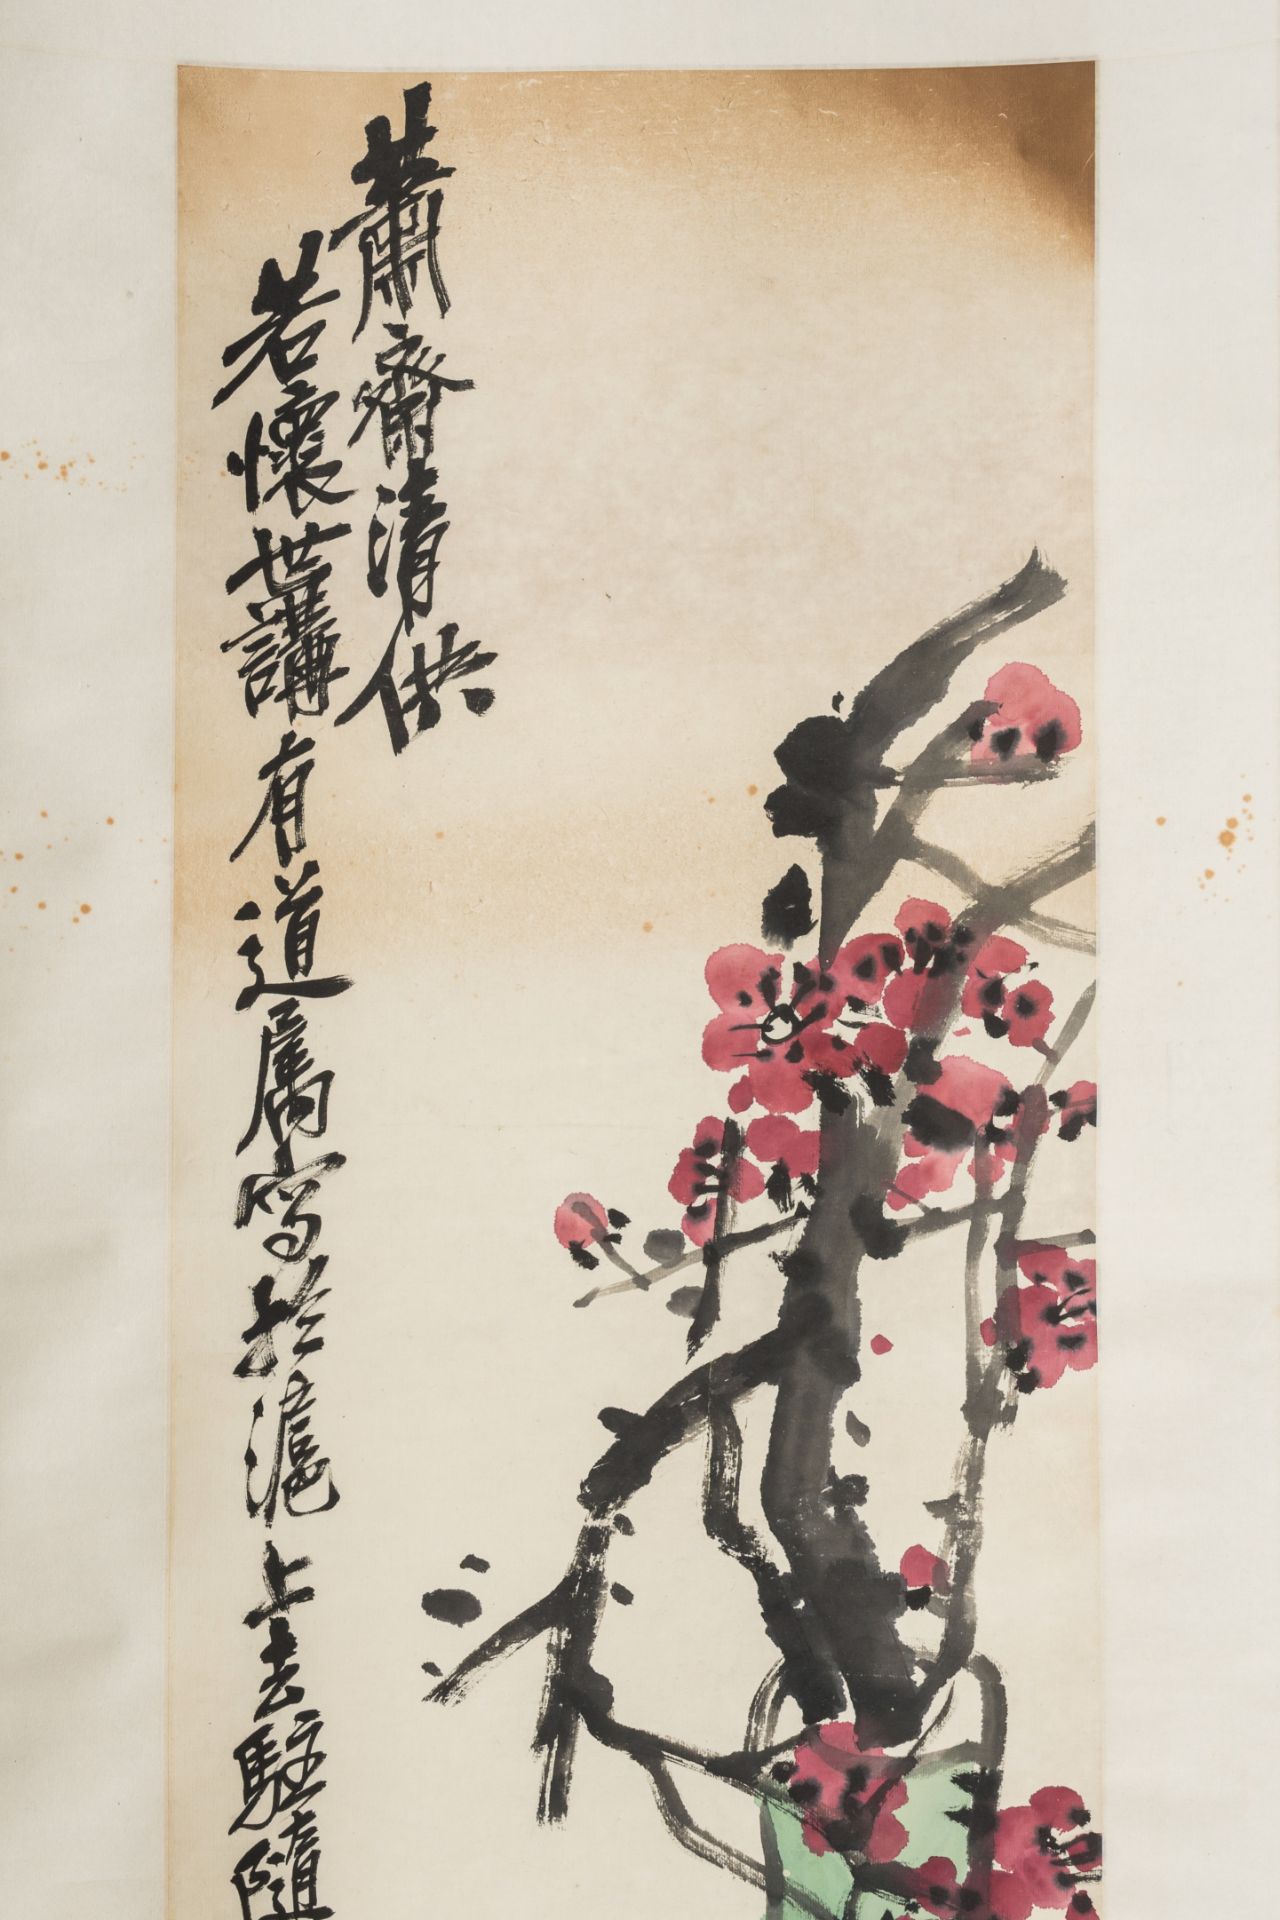 蕭齋清供
若懷世講有道屬寫於滬上去駐隨